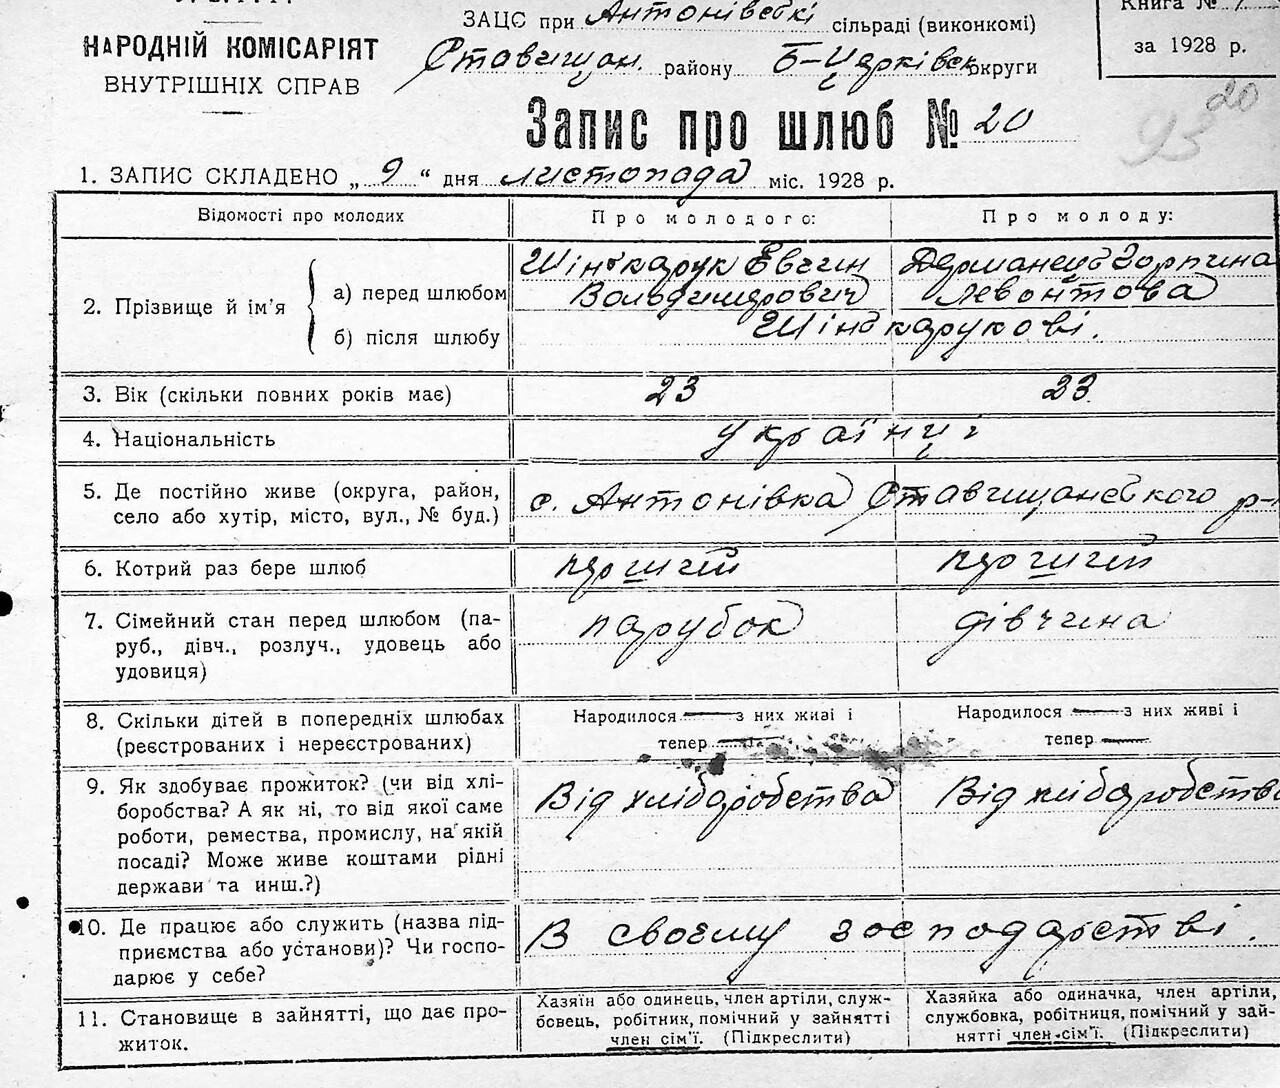 НАРОДНІЙ КОМІСАРІЯТ
ВНУТРІШНІХ СПРАВ
ЗАЦС при Антонівські сільраді (виконкомі)
Ставищан. району Б-Церківськ округи
Книга №
за 1928 р.
Запис про шлюб № 20
20
93
1. ЗАПИС СКЛАДЕНО „ 9 “ дня листопада міс. 1928 р.
Відомості про молодих
Про молодого:
Про молоду:
2. Прізвище й ім'я
а) перед шлюбом
б) після шлюбу
Шінькарук Евгин
Володимирович
Дерманець Горпина
Левонтова
Шінькарукові.
3. Вік (скільки повних років має)
23
23
4. Національність
українці
5. Де постійно живе (округа, район,
село або хутір, місто, вул., № буд.)
с. Антонівка Ставищанського р-
6. Котрий раз бере шлюб
перший
перший
7. Сімейний стан перед шлюбом (па-
руб., дівч., розлуч., удовець або
удовиця)
парубок
дівчина
8. Скільки дітей в попередніх шлюбах
(реєстрованих і нереєстрованих)
Народилося — з них живі і
тепер —
Народилося — з них живі і
тепер —
9. Як здобуває прожиток? (чи від хлі-
боробства? А як ні, то від якої саме
роботи, ремества, промислу, на якій
посаді? Може живе коштами рідні
держави та инш.?)
Від хліборобства
Від хліборобства
10. Де працює або служить (назва під-
приємства або установи)? Чи госпо-
дарює у себе?
В своєму господарстві.
11. Становище в зайнятті, що дає про-
житок.
Хазяїн або одинець, член артіли, служ-
бовець, робітник, помічний у зайнятті
член сім'ї. (Підкреслити)
Хазяйка або одиначка, член артіли,
службовка, робітниця, помічний у зай-
нятті член сім'ї. (Підкреслити)